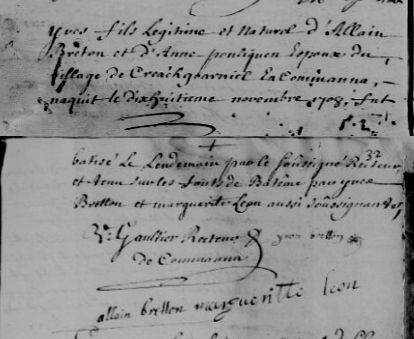 yves fils Legitime et Naturel d'Allain
Breton et d'Anne ponsiquen Epoux du
village de Creachgarniel En Commanna,
naquit le dixhuitieme novembre 1708, fut
batisé Le Lendemain par le soussigné Recteur
et tenu sur les fonts de Batême par yves
Bretton et marguerite Leon aussi soussignantes,
Gaultier Recteur yvon bretton
de Commanna
allain bretton margueritte leon